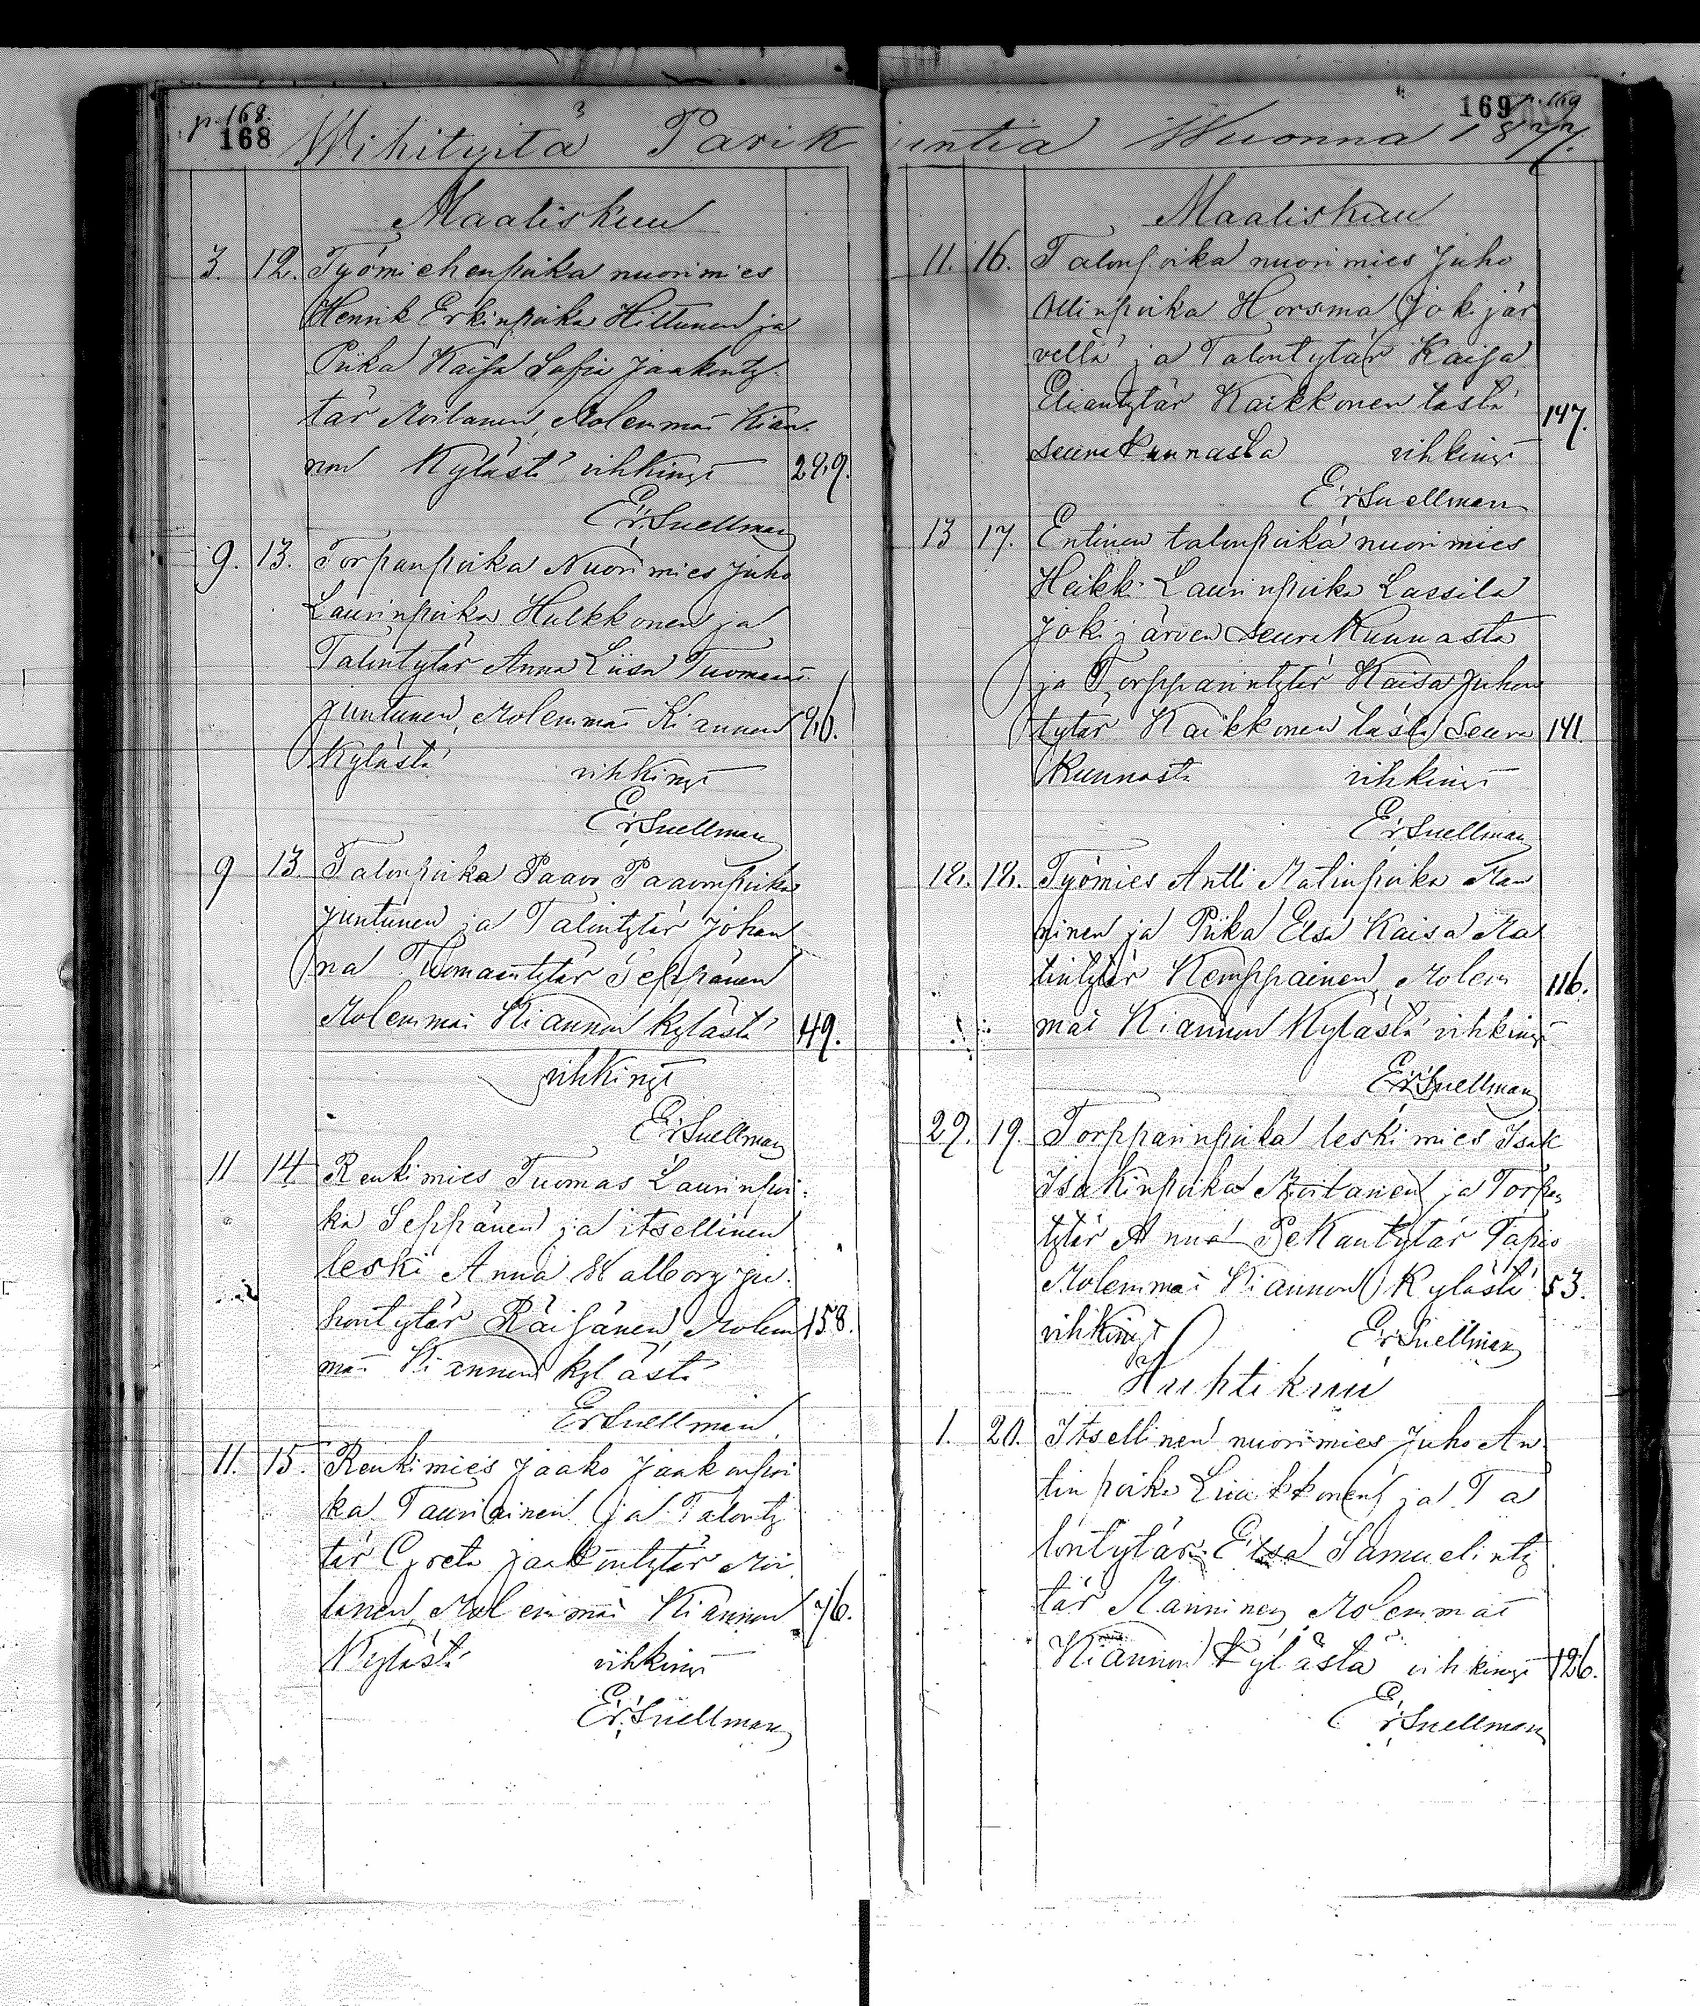 p. 168.
168
Wihityitä Parik
Maaliskuu
3. 12. Työmiehenpoika nuorimies
Henrik Erkinpoika Hiltunen ja
Piika Kaisa Sofia Jaakonty
tär Moilanen, Molemmat Kian
non Kylästä vihkinyt 289.
Er. Snellman
9. 13. Torpanpoika Nuorimies Juho
Laurinpoika Hulkkonen ja
Talontytär Anna Liisa Tuomaant.
Juntunen, Molemmat Kiannon 96.
Kylästä vihkinyt
Er. Snellman
9 13. Talonpoika Paavo Paavonpoika
Juntunen ja Talontytär Johan
na Tuomaantytär Seppänen
Molemmat Kiannon kylästä 49.
vihkinyt
Er. Snellman
11 14 Renkimies Tuomas Laurinpoi-
ka Seppänen ja itsellinen
leski Anna Walborg Ju-
hontytär Räisänen, Molem 158.
mat Kiannon kylästä
Er Snellman.
11. 15. Renkimies Jaako Jaakonpoi
ka Tauriainen ja Talonty
tär Greta Jaakontytär Moi
lanen, Molemmat Kiannon 76.
Kylästä vihkinyt
Er. Snellman
169 p. 169
intia Wuonna 1877.
Maaliskuu
11. 16. Talonpoika nuorimies Juho
Ollinpoika Horsma Jokijär
veltä ja Talontytär Kaisa
Eliantytär Kaikkonen tästä 147.
seurakunnasta vihkinyt
Er Snellman
13 17. Entinen talonpoika nuorimies
Heikki Laurinpoika Lassila
Jokijärven seurakunnasta
ja Torpparintytär Kaisa Juhon
tytär Kaikkonen tästä Seura 141.
kunnasta vihkinyt
Er. Snellman
18. 18. Työmies Antti Matinpoika Man
ninen ja Piika Elsa Kaisa Ma
tintytär Kemppainen, Molem 116.
mat Kiannon Kylästä vihkinyt
Er. Snellman
29. 19. Torpparinpoika leskimies Isak
Isakinpoika Moilanen ja Torpan
tytär Anna Pekantytär Tapio
Molemmat Kiannon Kylästä 53.
vihkinyt Er. Snellman
Huhtikuu
1. 20. Itsellinen nuorimies Juho An
tinpoika Liukkonen ja Ta
lontytär Elsa Samuelinty
tär Manninen Molemmat
Kiannon Kylästä vihkinyt 126.
Er. Snellman